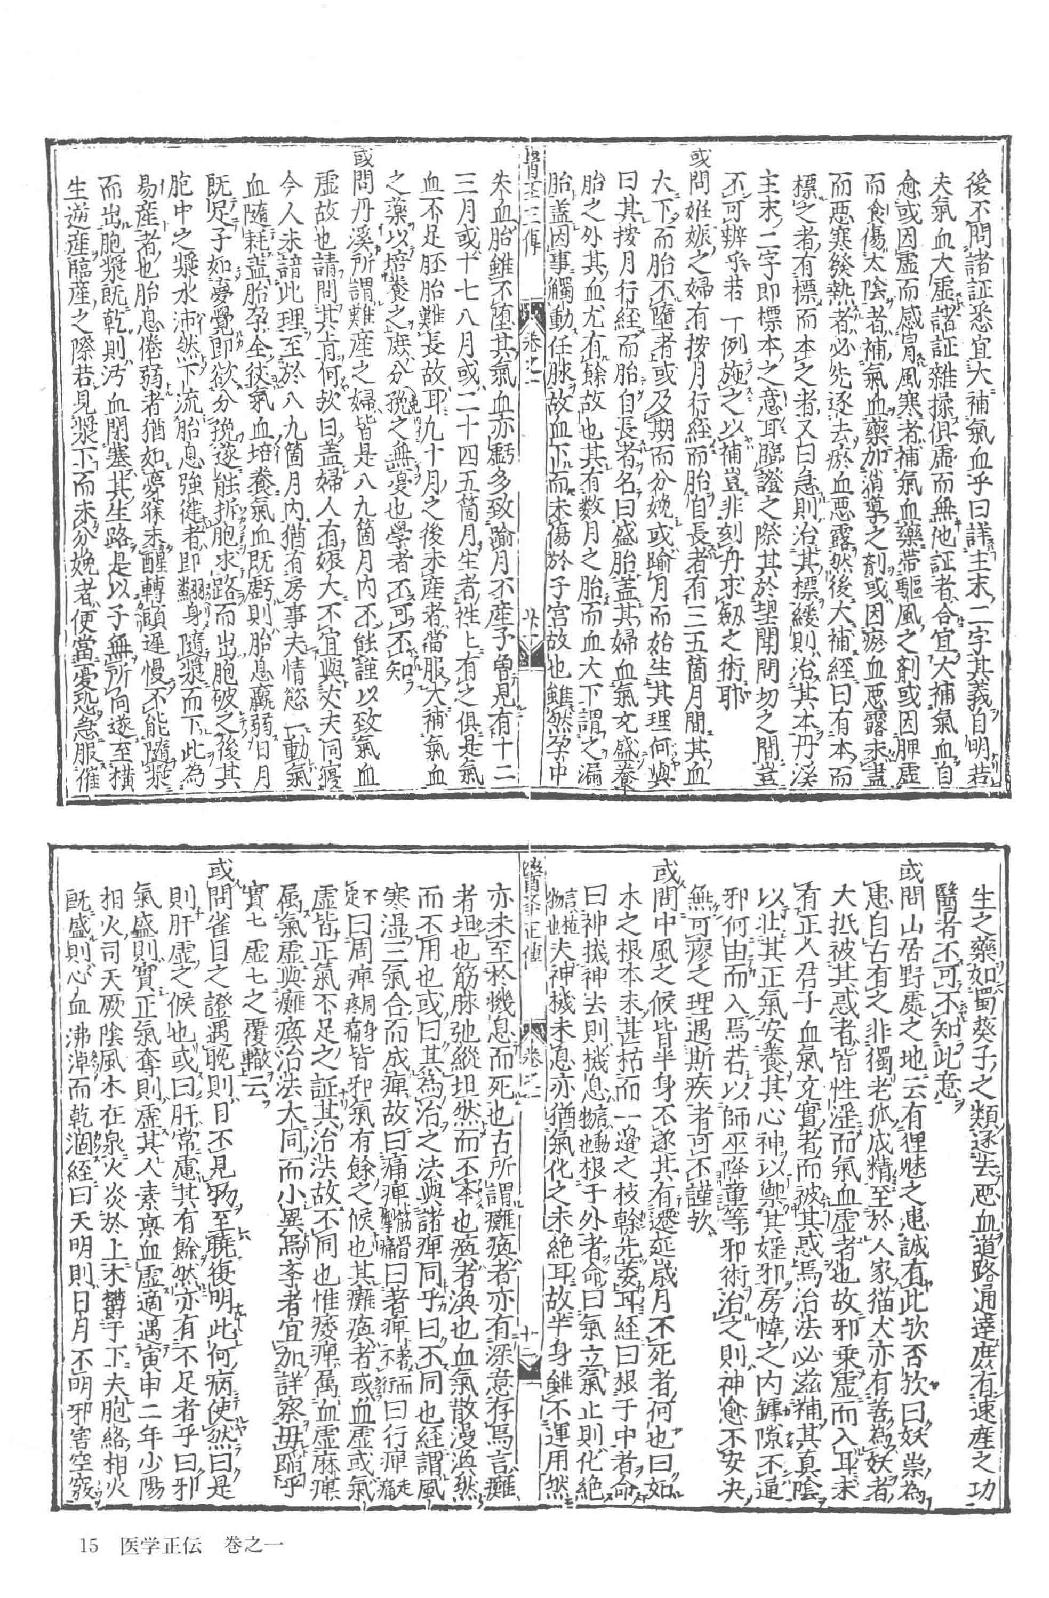 後不問諸証悉宜大補氣血乎曰詳主末二字其義自明若
夫氣血大虛諸証雜揉俱虛而無他証者合宜大補氣血自
愈或因虛而感冒風寒者補氣血藥帶驅風之剤或因脾虛
而食傷太陰者補氣血藥加消導之剤或因瘀血悪露未盡
而悪寒發熱者必先逐去瘀血悪露然後大補經曰有本而
標之者有標而本之者又曰急則治其標緩則治其本丹溪
主末二字即標本之意耳臨證之際其於望聞問切之間豈
不可辨乎若一例施之以補豈非刻舟求劔之術耶
或問姙娠之婦有按月行經而胎自長者有三五箇月間其血
大下而胎不墮者或及期而分娩或踰月而始生其理何與
曰其按月行經而胎自長者名曰盛胎蓋其婦血氣充盛養
胎之外其血尤有餘故也其有数月之胎而血大下謂之漏
胎蓋因事觸動任脉故血下而未傷於子宮故也雖然孕中
醫學正傳 卷之一 十一
失血胎雖不堕其氣血亦虧多致踰月不産予曽見有十二
三月或十七八月或二十四五箇月生者徃上有之俱是氣
血不足胚胎難長故耳九十月之後未産者當服大補氣血
之藥以培養之庶分娩之無憂也學者不可不知
或問丹溪所謂難産之婦皆是八九箇月内不能謹以致氣血
虛故也請問其旨何故曰蓋婦人有娠大不宜與丈夫同寢
今人未諳此理至於八九箇月内猶有房事夫情慾一動氣
血隨耗蓋胎孕全仗氣血培養氣血既虧則胎息羸弱日月
既足子如夢覺即欲分娩遂能拆胞求路而出胞破之後其
胞中之漿水沛然下流胎息強健者即翻身隨漿而下此為
易産者也胎息倦弱者猶如夢寐未醒轉頭遲慢不能隨漿
而出胞漿既乾則汚血閉塞其生路是以子無所向遂至橫
生逆産臨産之際若見漿下而未分娩者便當憂恐急服催
生之藥如蜀葵子之類逐去悪血道路通達庶有速産之功
醫者不可不知此意
或問山居野處之地云有狸魅之患誠有此欤否欤曰妖祟為
患自古有之非獨老狐成精至於人家猫犬亦有善為妖者
大抵被其惑者皆性淫而氣血虛者也故邪乗虛而入耳未
有正人君子血氣充實者而被其惑焉治法必滋補其真陰
以壮其正氣安養其心神以禦其婬邪房幃之内罅隙不通
邪何由而入焉若以師巫降童等邪術治之則神愈不安决
無可瘳之理遇斯疾者可不謹欤
或問中風之候皆半身不遂其有遷延歳月不死者何也曰如
木之根本未甚枯而一邉之枝幹先萎耳經曰根于中者命
曰神機神去則機息言動物也根于外者命曰氣立氣止則化絶
言植物也夫神機未息亦猶氣化之未絶耳故半身雖不運用然
醫學正傳 卷之一 十二
亦未至於機息而死也古所謂癱瘓者亦有深意存焉言癱
者坦也筋脉弛縱坦然而不㪯也瘓者渙也血氣散漫渙然
而不用也或曰其為治之法與諸痺同乎曰不同也經謂風
寒湿三氣合而成痺故曰痛痺曰著痺曰行痺
曰周痺皆邪氣有餘之候也其癱瘓者或血虛或氣
虛皆正氣不足之証其治法故不同也惟痿痺属血虛麻痺
属氣虛與癱瘓治法大同而小異焉㪯者宜加詳察毋蹈乎
實七虛七之覆轍云
或問雀目之證遇晚則目不見物至暁復明此何病使然曰是
則肝虛之候也或曰肝常慮其有餘然亦有不足者乎曰邪
氣盛則實正氣奪則虛其人素稟血虛適遇寅申二年少陽
相火司天厥陰風木在泉火炎於上木鬱于下夫胞絡相火
既盛則心血沸淖而乾涸經曰天明則日月不明邪害空竅
15 医学正伝 巻之一